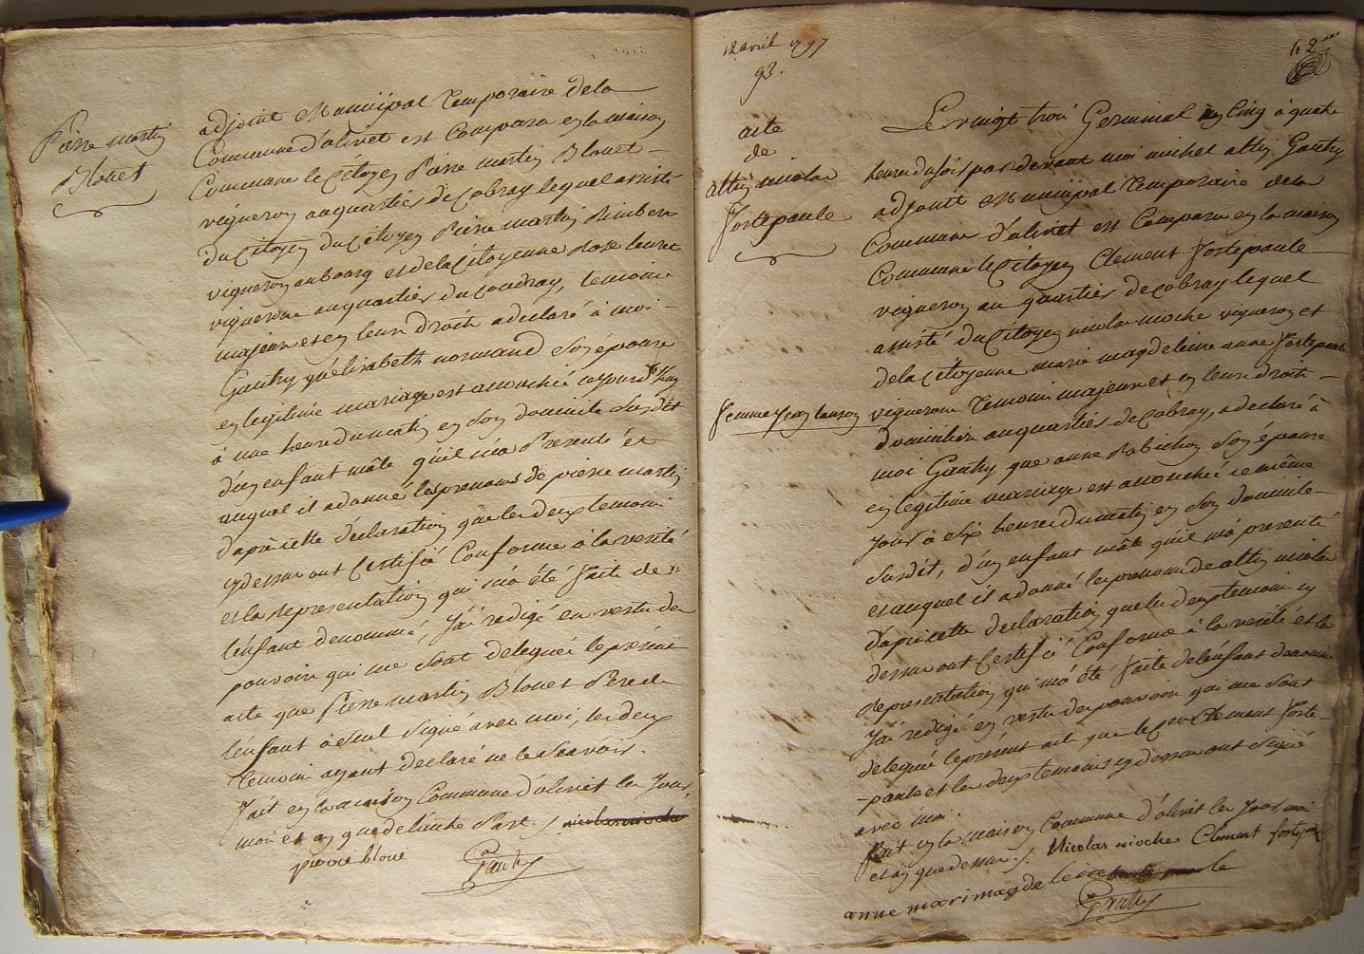 Pierre martin
Blouet
adjoint Municipal temporaire dela
Commune d'olivet est Comparu en la maison
Commune le Citoyen Pierre martin Blouet
vigneron au quartier de Cobray lequel assisté
du Citoyen du Citoyen Pierre martin
vigneron au bourg et dela Citoyenne Rose
vigneronne au quartier du Coudray, temoins
majeurs et en leurs droits a declaré à moi
Gauthy qu'élisabeth normand Son epouse
en legitime mariage est accouchée cejourd'huy
à une heure du matin en Son domicile Susdit
d'un enfant mâle qu'il m'a Presenté et
auquel il a donné les prenoms de pierre martin
d'après cette déclaration que les deux temoins
cy dessus ont Certifié Conforme à la verité
et la Representation qui m'a été faite de
l'enfant denommé, J'ai redigé en vertu des
pouvoirs qui me Sont delegués le présent
acte que Pierre martin Blouet Pere de
l'enfant a Seul Signé avec moi, les deux
temoins ayant declaré ne le Sçavoir.
fait en la maison Commune d'olivet les Jour,
mois et an que delautre Part.
pierre bloue
Gauthy
12 avril 1797
93.
42
acte
de
altin nicolas
fortepaule
Le vingt trois Germinal an Cinq à quatre
heures du soir par devant moi michel altin Gauthy
adjoint Municipal temporaire dela
Commune d'olivet est Comparu en la maison
Commune le Citoyen Clement fortepaule
vigneron au quartier de Cobray lequel
assisté du Citoyen nicolas moche vigneron et
dela Citoyenne marie magdeleine anne fortepaule
femme Jean
vigneronne temoins majeurs et en leurs droits
domiciliés au quartier de Cobray, a declaré à
moi Gauthy que anne Rabichon Son épouse
en legitime mariage est accouchée ce même
jour à Six heures du matin en Son domicile
Susdit, d'un enfant mâle qu'il m'a presenté
et auquel il a donné les prenoms de altin nicolas
d'après cette declaration que les deux temoins cy
dessus ont Certifié Conforme à la verité et la
Representation qui m'a été faite de l'enfant denommé
J'ai redigé en vertu des pouvoirs qui me Sont
delegués le présent acte que le Clement forte-
paule et les deux temoins cy dessus ont Signé
avec moi.
fait en la maison Commune d'olivet les Jour, mois
et an que dessus. Nicolas moche Clement
anne mari magdeleine le
Gauthy